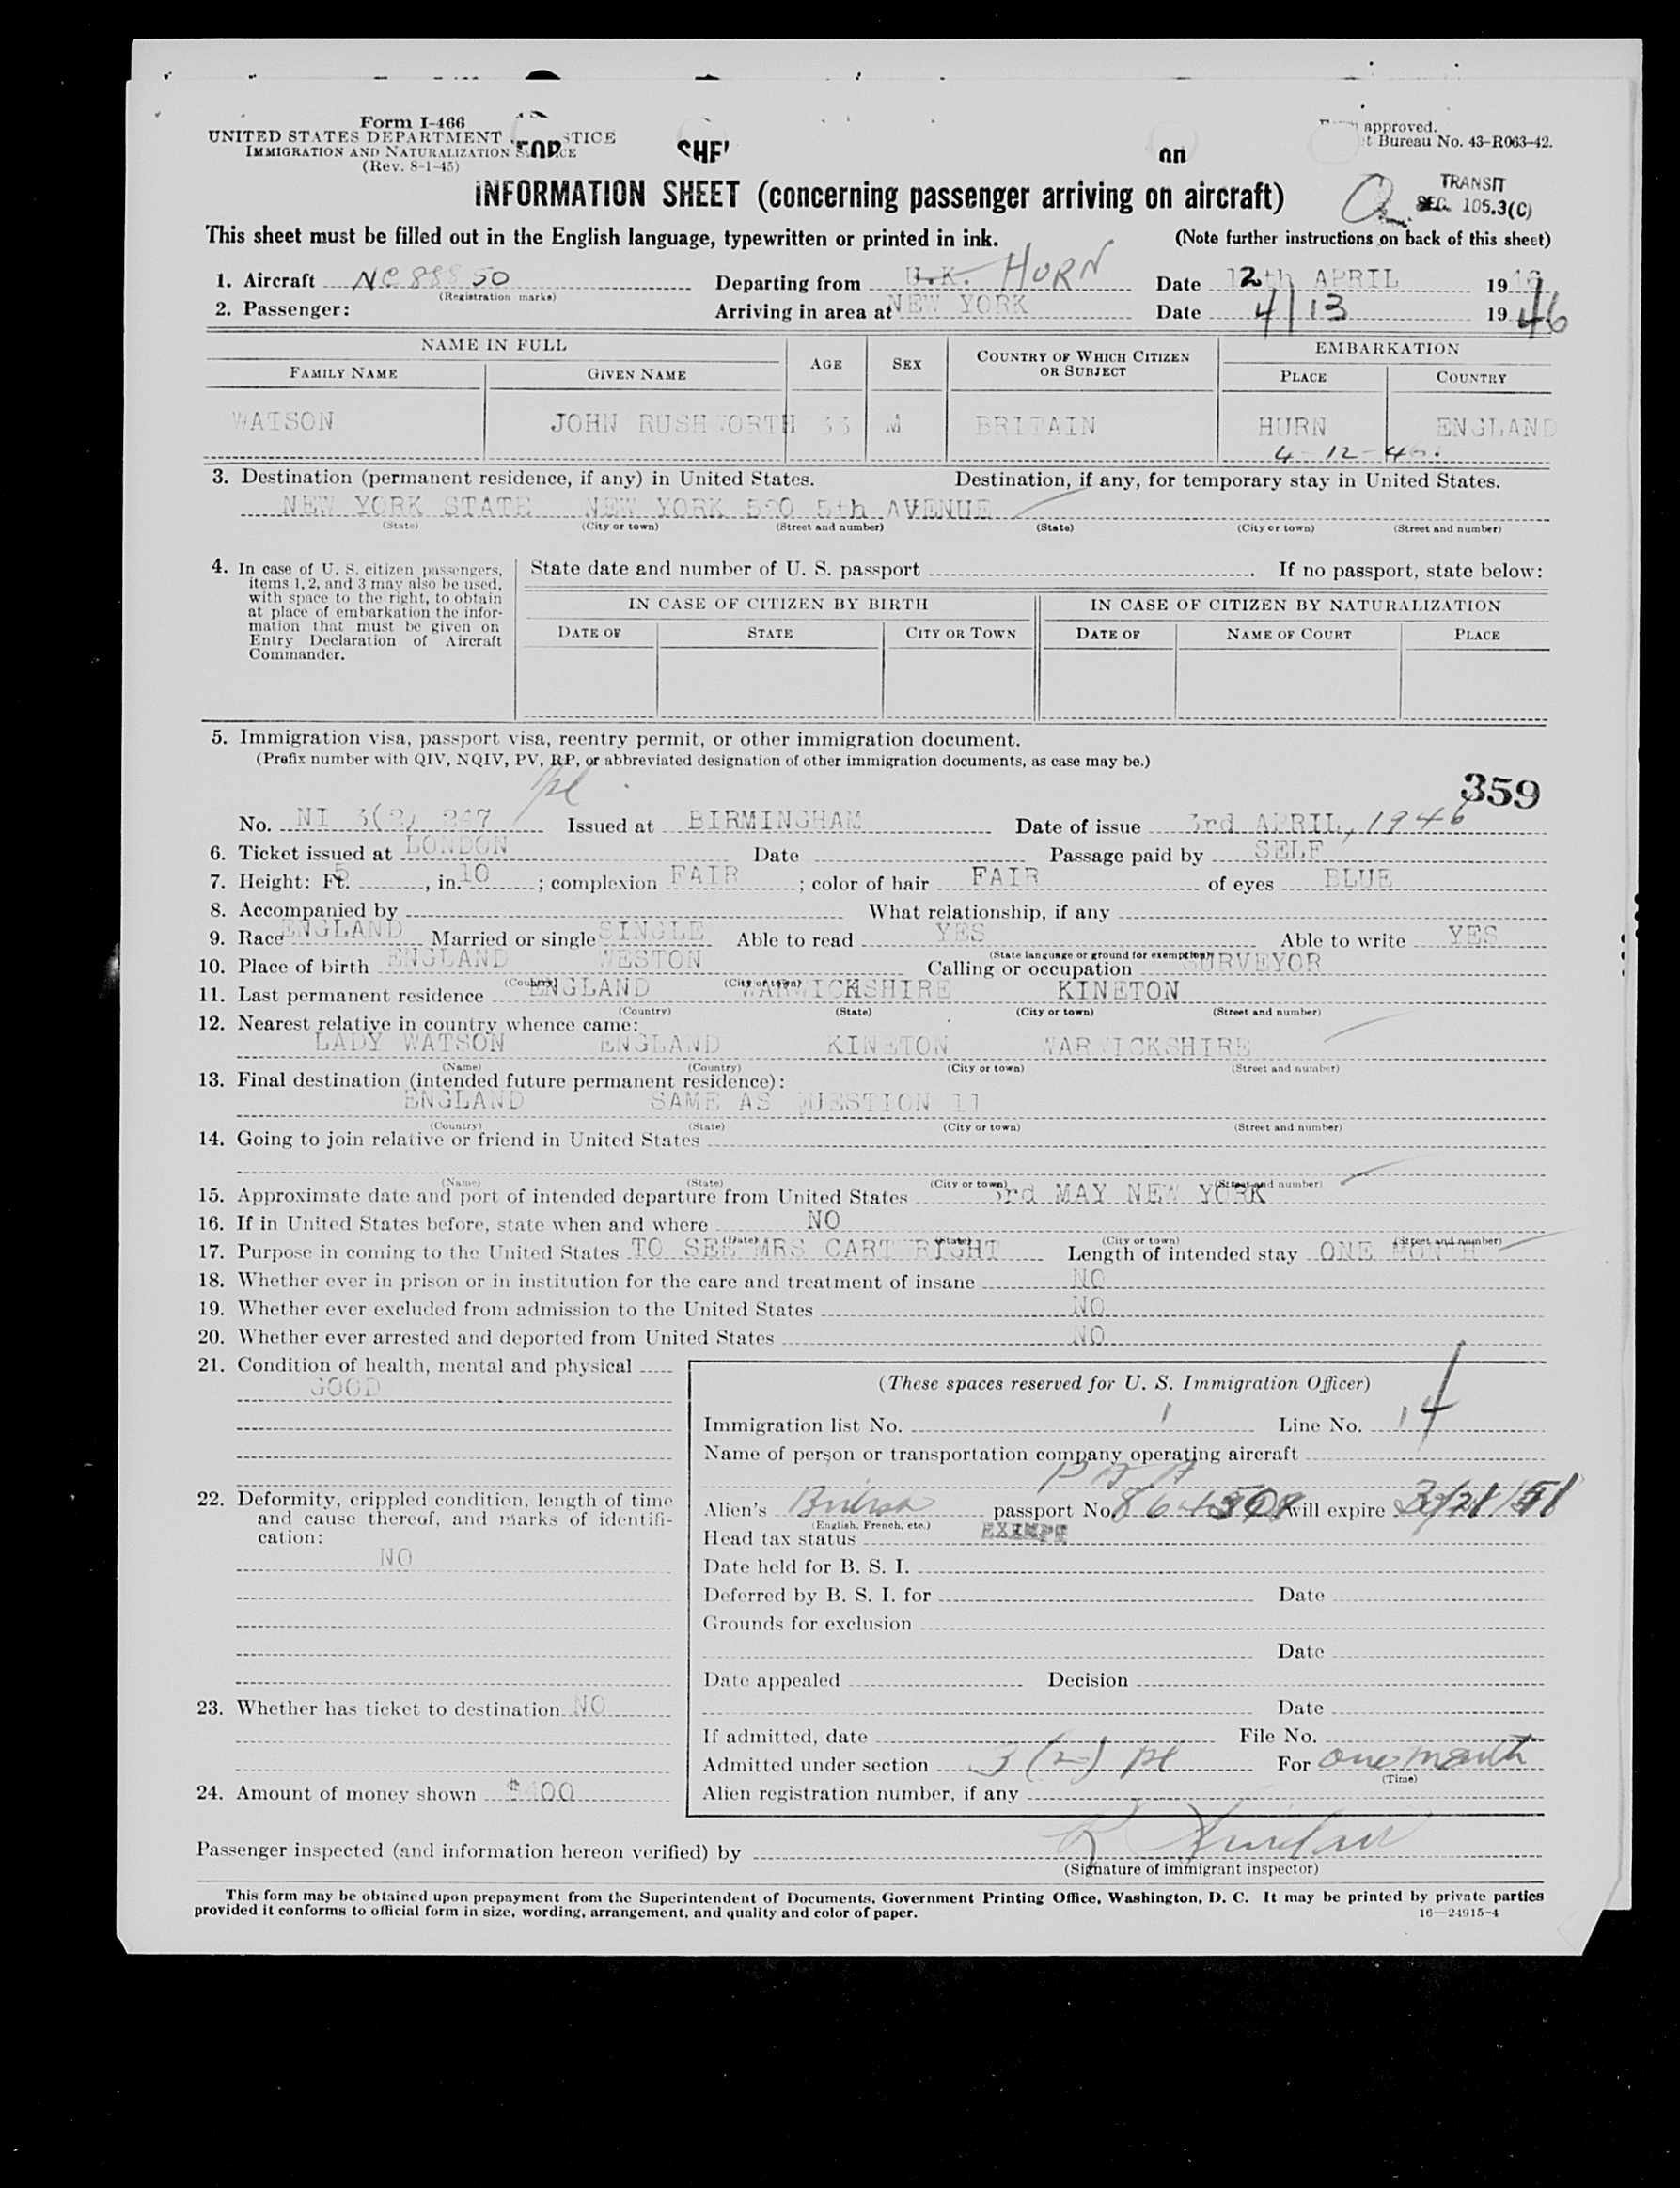 Form I-466
UNITED STATES DEPARTMENT STICE
IMMIGRATION AND NATURALIZATION
(Rev. 8-1-45)
approved.
Bureau No. 43-R063-42.
INFORMATION SHEET (concerning passenger arriving on aircraft)
TRANSIT
SEC. 105.3(C)
This sheet must be filled out in the English language, typewritten or printed in ink. (Note further instructions on back of this sheet)
1. Aircraft NC 88850 Departing from U.K. HURN Date 12th APRIL 1946
(Registration marks)
2. Passenger: Arriving in area at NEW YORK Date 4/13 1946
NAME IN FULL AGE SEX COUNTRY OF WHICH CITIZEN OR SUBJECT EMBARKATION
FAMILY NAME GIVEN NAME PLACE COUNTRY
WATSON JOHN RUSHWORTH 33 M BRITAIN HURN ENGLAND
4-12-46.
3. Destination (permanent residence, if any) in United States. Destination, if any, for temporary stay in United States.
NEW YORK STATE NEW YORK 5th AVENUE
(State) (City or town) (Street and number) (State) (City or town) (Street and number)
4. In case of U. S. citizen passengers, items 1, 2, and 3 may also be used, with space to the right, to obtain at place of embarkation the information that must be given on Entry Declaration of Aircraft Commander.
State date and number of U. S. passport . If no passport, state below:
IN CASE OF CITIZEN BY BIRTH IN CASE OF CITIZEN BY NATURALIZATION
DATE OF STATE CITY OR TOWN DATE OF NAME OF COURT PLACE
5. Immigration visa, passport visa, reentry permit, or other immigration document.
(Prefix number with QIV, NQIV, PV, RP, or abbreviated designation of other immigration documents, as case may be.)
359
No. NI 3(2) 247 Issued at BIRMINGHAM Date of issue 3rd APRIL, 1946
6. Ticket issued at LONDON Date Passage paid by SELF
7. Height: Ft. 5, in. 10; complexion FAIR; color of hair FAIR of eyes BLUE
8. Accompanied by What relationship, if any
9. Race ENGLAND Married or single SINGLE Able to read YES Able to write YES
(State language or ground for exemption)
10. Place of birth ENGLAND WESTON Calling or occupation SURVEYOR
(Country) (City or town)
11. Last permanent residence ENGLAND WARWICKSHIRE KINETON
(Country) (State) (City or town) (Street and number)
12. Nearest relative in country whence came:
LADY WATSON ENGLAND KINETON WARWICKSHIRE
(Name) (Country) (City or town) (Street and number)
13. Final destination (intended future permanent residence):
ENGLAND SAME AS QUESTION 11
(Country) (State) (City or town) (Street and number)
14. Going to join relative or friend in United States
(Name) (State) (City or town) (Street and number)
15. Approximate date and port of intended departure from United States 3rd MAY NEW YORK
16. If in United States before, state when and where NO
(Date) (State) (City or town) (Street and number)
17. Purpose in coming to the United States TO SEE MRS CARTWRIGHT Length of intended stay ONE MONTH
18. Whether ever in prison or in institution for the care and treatment of insane NO
19. Whether ever excluded from admission to the United States NO
20. Whether ever arrested and deported from United States NO
21. Condition of health, mental and physical
GOOD
22. Deformity, crippled condition, length of time and cause thereof, and marks of identification:
NO
23. Whether has ticket to destination NO
24. Amount of money shown $400
(These spaces reserved for U. S. Immigration Officer)
Immigration list No. 1 Line No. 14
Name of person or transportation company operating aircraft
P A A
Alien's British passport No. will expire 3/21/51
(English, French, etc.)
Head tax status EXEMPT
Date held for B. S. I.
Deferred by B. S. I. for Date
Grounds for exclusion
Date
Date appealed Decision
Date
If admitted, date File No.
Admitted under section 3(2) For one month
(Time)
Alien registration number, if any
Passenger inspected (and information hereon verified) by
(Signature of immigrant inspector)
This form may be obtained upon prepayment from the Superintendent of Documents, Government Printing Office, Washington, D. C. It may be printed by private parties
provided it conforms to official form in size, wording, arrangement, and quality and color of paper. 16—24915-4